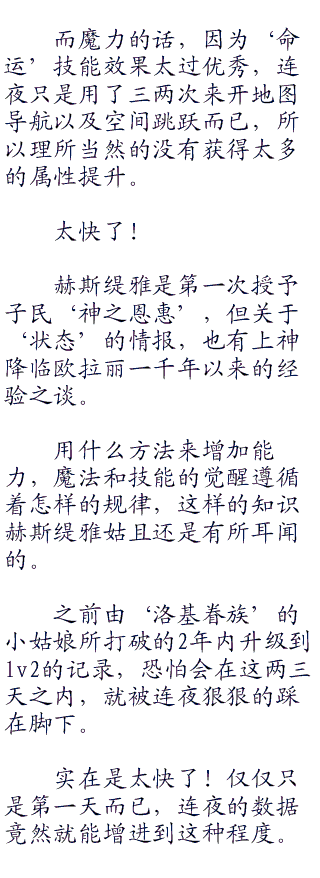 而魔力的话，因为‘命
运’技能效果太过优秀，连
夜只是用了三两次来开地图
导航以及空间跳跃而已，所
以理所当然的没有获得太多
的属性提升。
太快了！
赫斯缇雅是第一次授予
子民‘神之恩惠’，但关于
‘状态’的情报，也有上神
降临欧拉丽一千年以来的经
验之谈。
用什么方法来增加能
力，魔法和技能的觉醒遵循
着怎样的规律，这样的知识
赫斯缇雅姑且还是有所耳闻
的。
之前由‘洛基眷族’的
小姑娘所打破的2年内升级到
lv2的记录，恐怕会在这两三
天之内，就被连夜狠狠的踩
在脚下。
实在是太快了！仅仅只
是第一天而已，连夜的数据
竟然就能增进到这种程度。